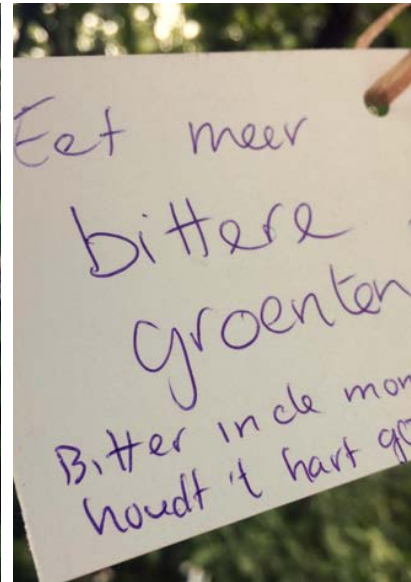 Eet meer
bittere
groenten
Bitter in de mon
houdt 't hart